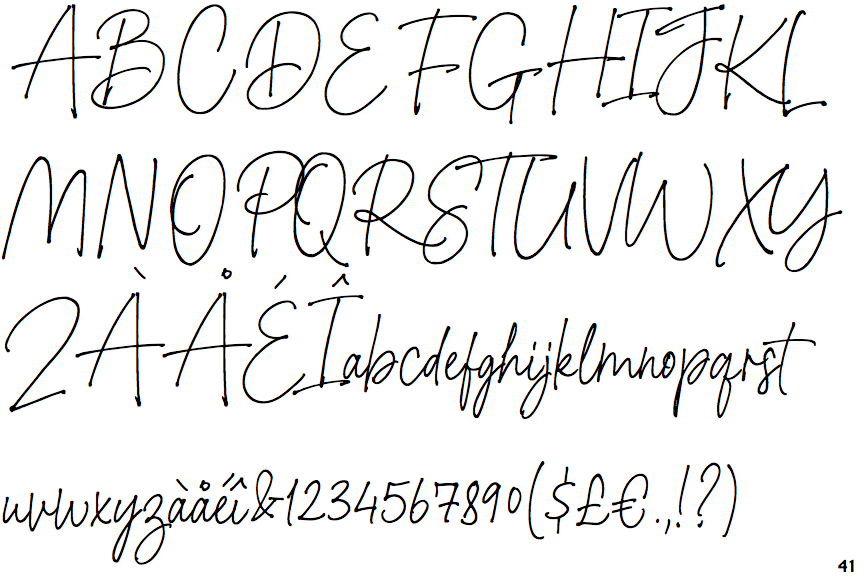 ABCDEFGHIJKL
MNOPQRSTUVWXY
ZÀÅÉÎabcdefghijklmnopqrst
uvwxyzàåéî&1234567890($£€.,!?)
41